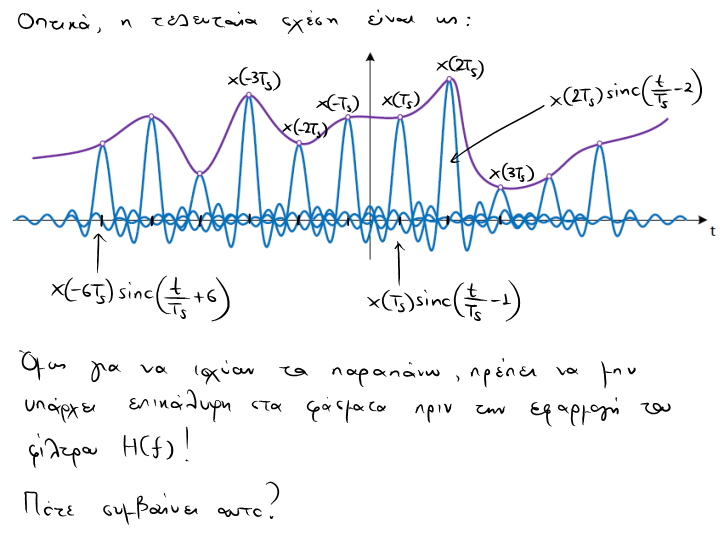 Οπτικά, η τελευταία σχέση είναι ως:
x(2Ts)
x(-3Ts)
x(-Ts) x(Ts)
x(2Ts)sinc(t/Ts-2)
x(-2Ts)
x(3Ts)
t
x(-6Ts)sinc(t/Ts+6)
x(Ts)sinc(t/Ts-1)
Όμως για να ισχύουν τα παραπάνω, πρέπει να μην
υπάρχει επικάλυψη στα φάσματα πριν την εφαρμογή του
φίλτρου H(f)!
Πότε συμβαίνει αυτό?